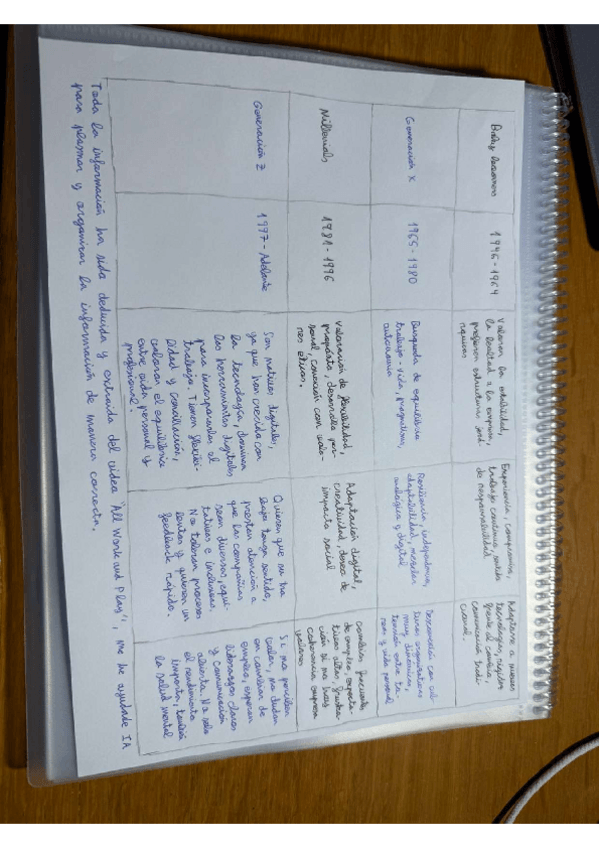 Baby boomers
1946 - 1964
Valoran la estabilidad,
la lealtad a la empresa,
prefieren estructuras jerár-
quicas
Experiencia, compromiso,
trabajo continuo, sentido
de responsabilidad
Adaptarse a nuevas
tecnologías, rigidez
frente al cambio,
comunicación tradi-
cional.
Generación X
1965 - 1980
Búsqueda de equilibrio
trabajo - vida, pragmatismo,
autonomía
Resiliencia, independencia,
adaptabilidad, mezclan
analógica y digital
Desconexión con cul-
turas organizativas
muy dinámicas,
tensión entre tra-
bajo y vida personal
Millennials
1981 - 1996
Valoración de flexibilidad,
propósito, desarrollo per-
sonal, conexión con valo-
res éticos.
Adaptación digital,
creatividad, deseo de
impacto social
Cambios frecuentes
de empleo, expecta-
tivas altas, frustra-
ción si no hay
coherencia empresa
valores
Generación Z
1997 - Adelante
Son nativos digitales,
ya que han crecido con
la tecnología, dominan
las herramientas digitales
para incorporarlas al
trabajo. Tienen flexibi-
lidad y conciliación,
valoran el equilibrio
entre vida personal y
profesional.
Quieren que su tra
bajo tenga sentido,
prestan atención a
que las compañías
sean diversas, equi-
tativas e inclusivas.
No toleran procesos
lentos y quieren un
feedback rápido.
Si no perciben
valor, no dudan
en cambiar de
empleo, esperan
liderazgos claros
y comunicación
abierta. No solo
el rendimiento
importa, también
la salud mental
Toda la información ha sido deducida y extraída del video "All Work and Play", me he ayudado IA
para plasmar y organizar la información de manera correcta.